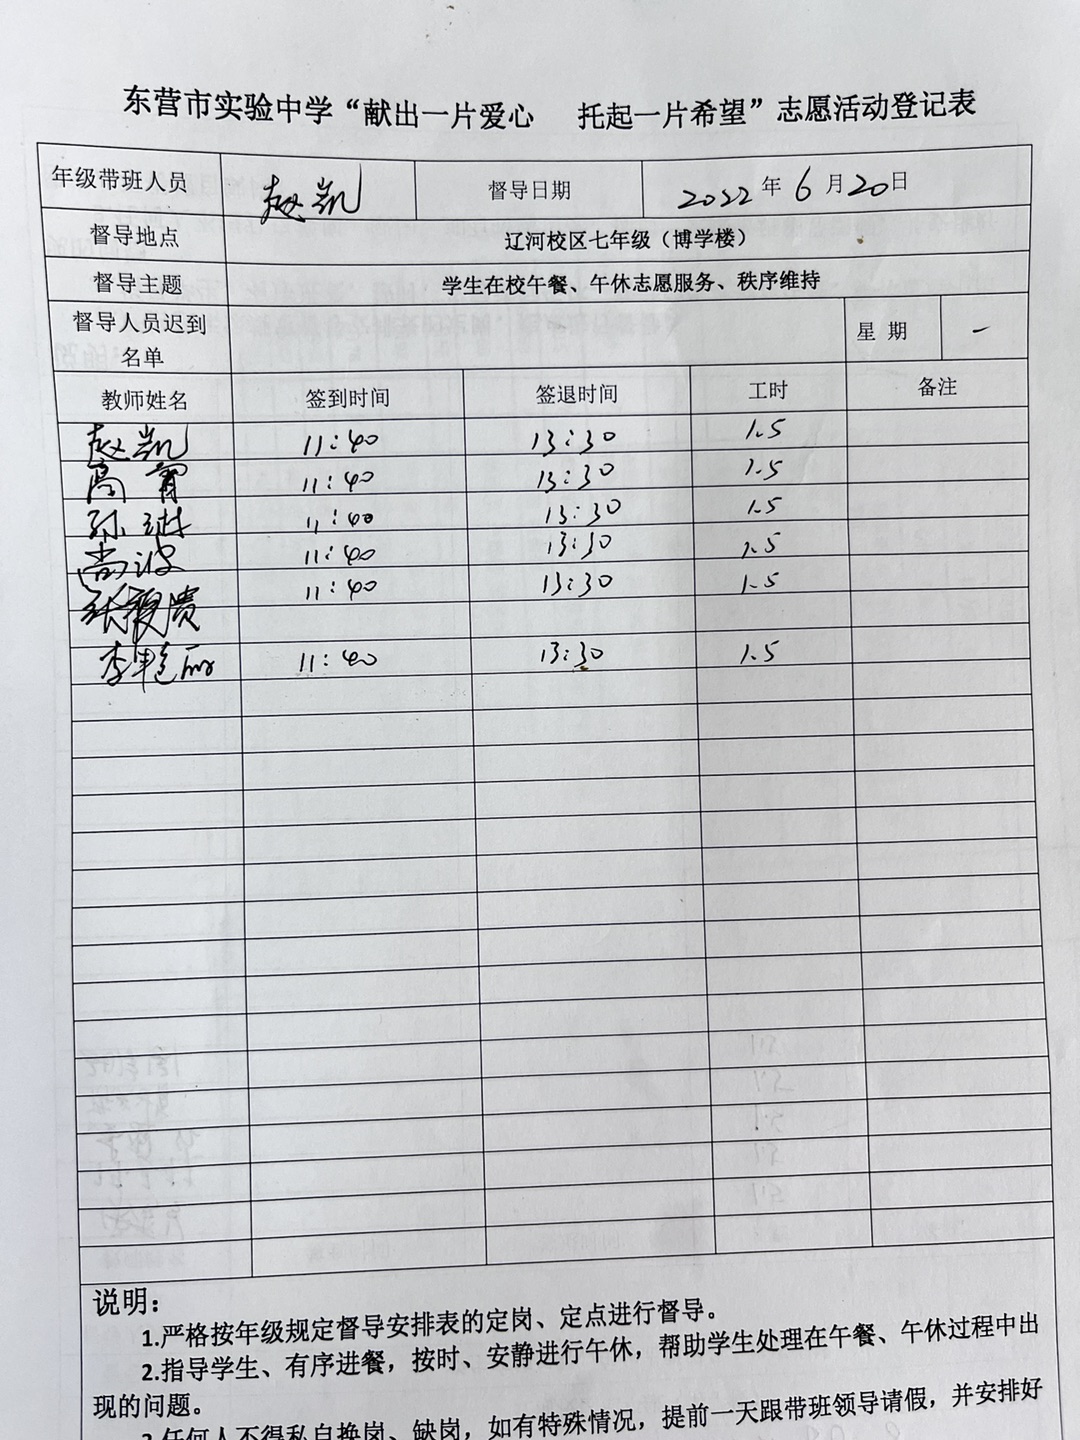 东营市实验中学“献出一片爱心 托起一片希望”志愿活动登记表
年级带班人员 赵凯 督导日期 2022年6月20日
督导地点 辽河校区七年级（博学楼）
督导主题 学生在校午餐、午休志愿服务、秩序维持
督导人员迟到名单 星期 一
教师姓名 签到时间 签退时间 工时 备注
赵凯 11:40 13:30 1.5
高 11:40 13:30 1.5
孙 11:40 13:30 1.5
尚波 11:40 13:30 1.5
张 11:40 13:30 1.5
李 11:40 13:30 1.5
说明：
1.严格按年级规定督导安排表的定岗、定点进行督导。
2.指导学生、有序进餐，按时、安静进行午休，帮助学生处理在午餐、午休过程中出
现的问题。
3.任何人不得私自换岗、缺岗，如有特殊情况，提前一天跟带班领导请假，并安排好